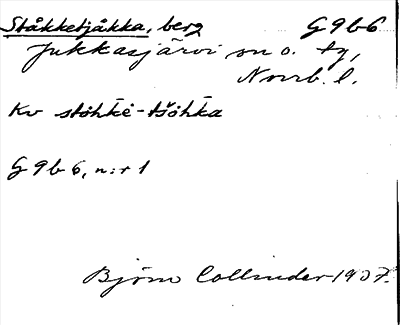 Ståkketjåkka, berg G9b6
Jukkasjärvi sn o. tg,
Norrb. l.
Kv stòhkè-tšòhka
G9b6, n:r 1
Björn Collinder 1937.